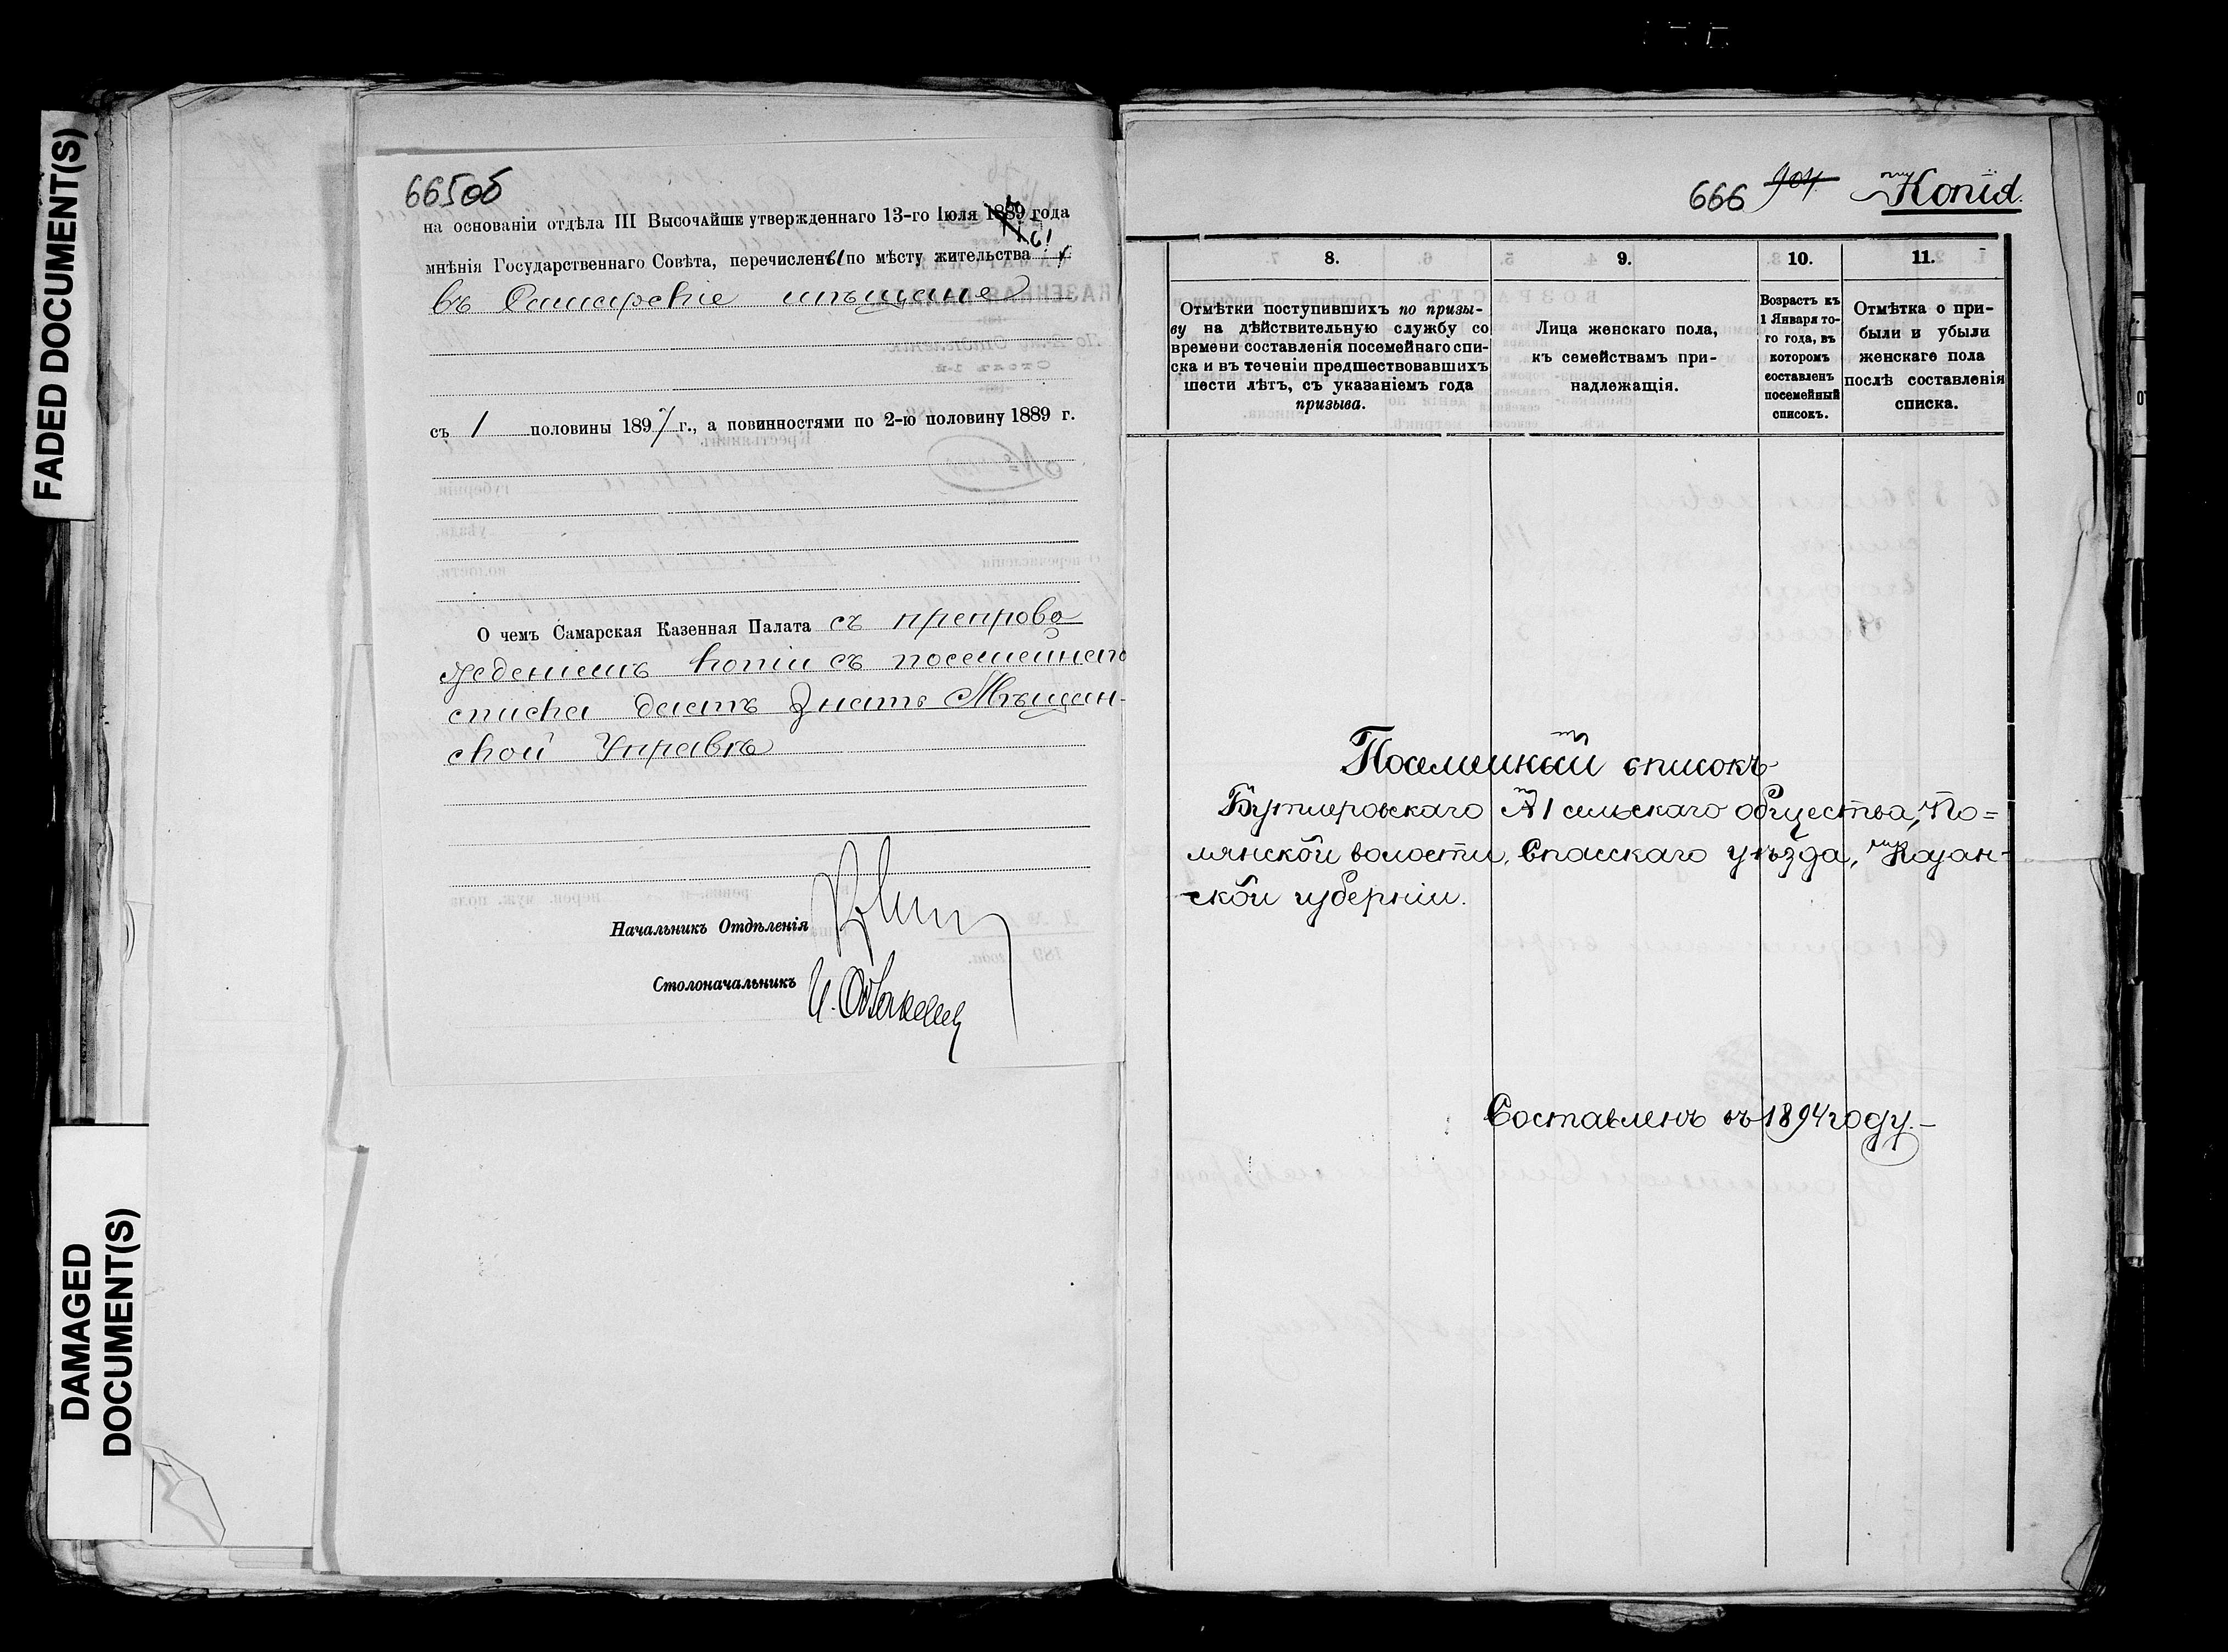 FADED DOCUMENT(S)
DAMAGED
DOCUMENT(S)
665об
на основаніи отдѣла III Высочайше утвержденнаго 13-го Іюля 1889 года
мнѣнія Государственнаго Совѣта, перечислены по мѣсту жительства
въ Самарскіе мѣщане
съ 1 половины 1897 г., а повинностями по 2-ю половину 1889 г.
О чемъ Самарская Казенная Палата съ препрово
жденіемъ копіи съ посемейнаго
списка даетъ знать Мѣщан-
ской Управѣ
Начальникъ Отдѣленія
Столоначальникъ
666 904 Копія.
8. 9. 10. 11.
Отмѣтки поступившихъ по призы-
ву на дѣйствительную службу со
времени составленія посемейнаго спи-
ска и въ теченіи предшествовавшихъ
шести лѣтъ, съ указаніемъ года
призыва.
Лица женскаго пола,
къ семействамъ при-
надлежащія.
Возрастъ къ
1 Января то-
го года, въ
которомъ
составленъ
посемейный
списокъ.
Отмѣтка о при-
были и убыли
женскаго пола
послѣ составленія
списка.
Посемейный списокъ
Бутлеровскаго № 1 сельскаго общества, По-
лянской волости, Спасскаго уѣзда, Казан-
ской губерніи.
Составленъ въ 1894 году.